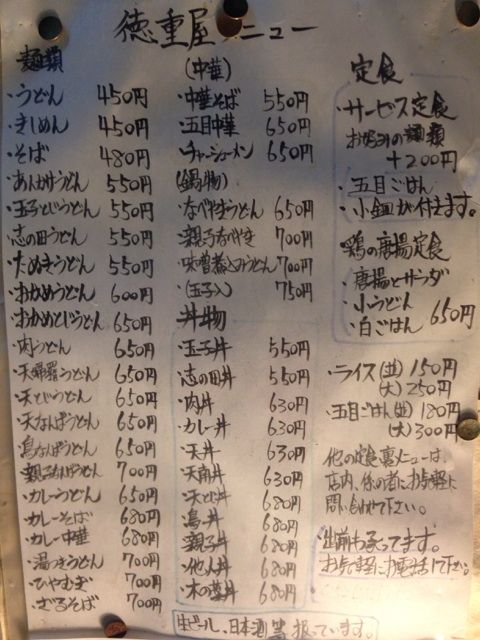 徳重屋メニュー
麺類
・うどん 450円
・きしめん 450円
・そば 480円
・あんかけうどん 550円
・玉子とじうどん 550円
・志の田うどん 550円
・たぬきうどん 550円
・おかめうどん 600円
・おかめとじうどん 650円
・肉うどん 650円
・天婦羅うどん 650円
・天とじうどん 650円
・天なんばうどん 650円
・鳥なんばうどん 650円
・親子なんばうどん 700円
・カレーうどん 650円
・カレーそば 680円
・カレー中華 680円
・湯つきうどん 700円
・ひやむぎ 700円
・ざるそば 700円
(中華)
・中華そば 550円
・五目中華 650円
・チャーシューメン 650円
(鍋物)
・なべやきうどん 650円
・親子なべやき 700円
・味噌煮込みうどん 700円
・(玉子入) 750円
丼物
・玉子丼 550円
・志の田丼 550円
・肉丼 630円
・カレー丼 630円
・天丼 630円
・天南丼 630円
・天とじ丼 680円
・鳥丼 680円
・親子丼 680円
・他人丼 680円
・木の葉丼 680円
生ビール、日本酒 扱っています。
定食
・サービス定食
お好みの麺類
+200円
・五目ごはん
・小鉢が付きます。
・鶏の唐揚定食
・唐揚とサラダ
・小うどん
・白ごはん 650円
・ライス(並) 150円
(大) 250円
・五目ごはん(並) 180円
(大) 300円
他の定食裏メニューは、
店内、係の者にお気軽に
問い合わせて下さい。
・出前も承ってます。
お気軽にお電話して下さい。